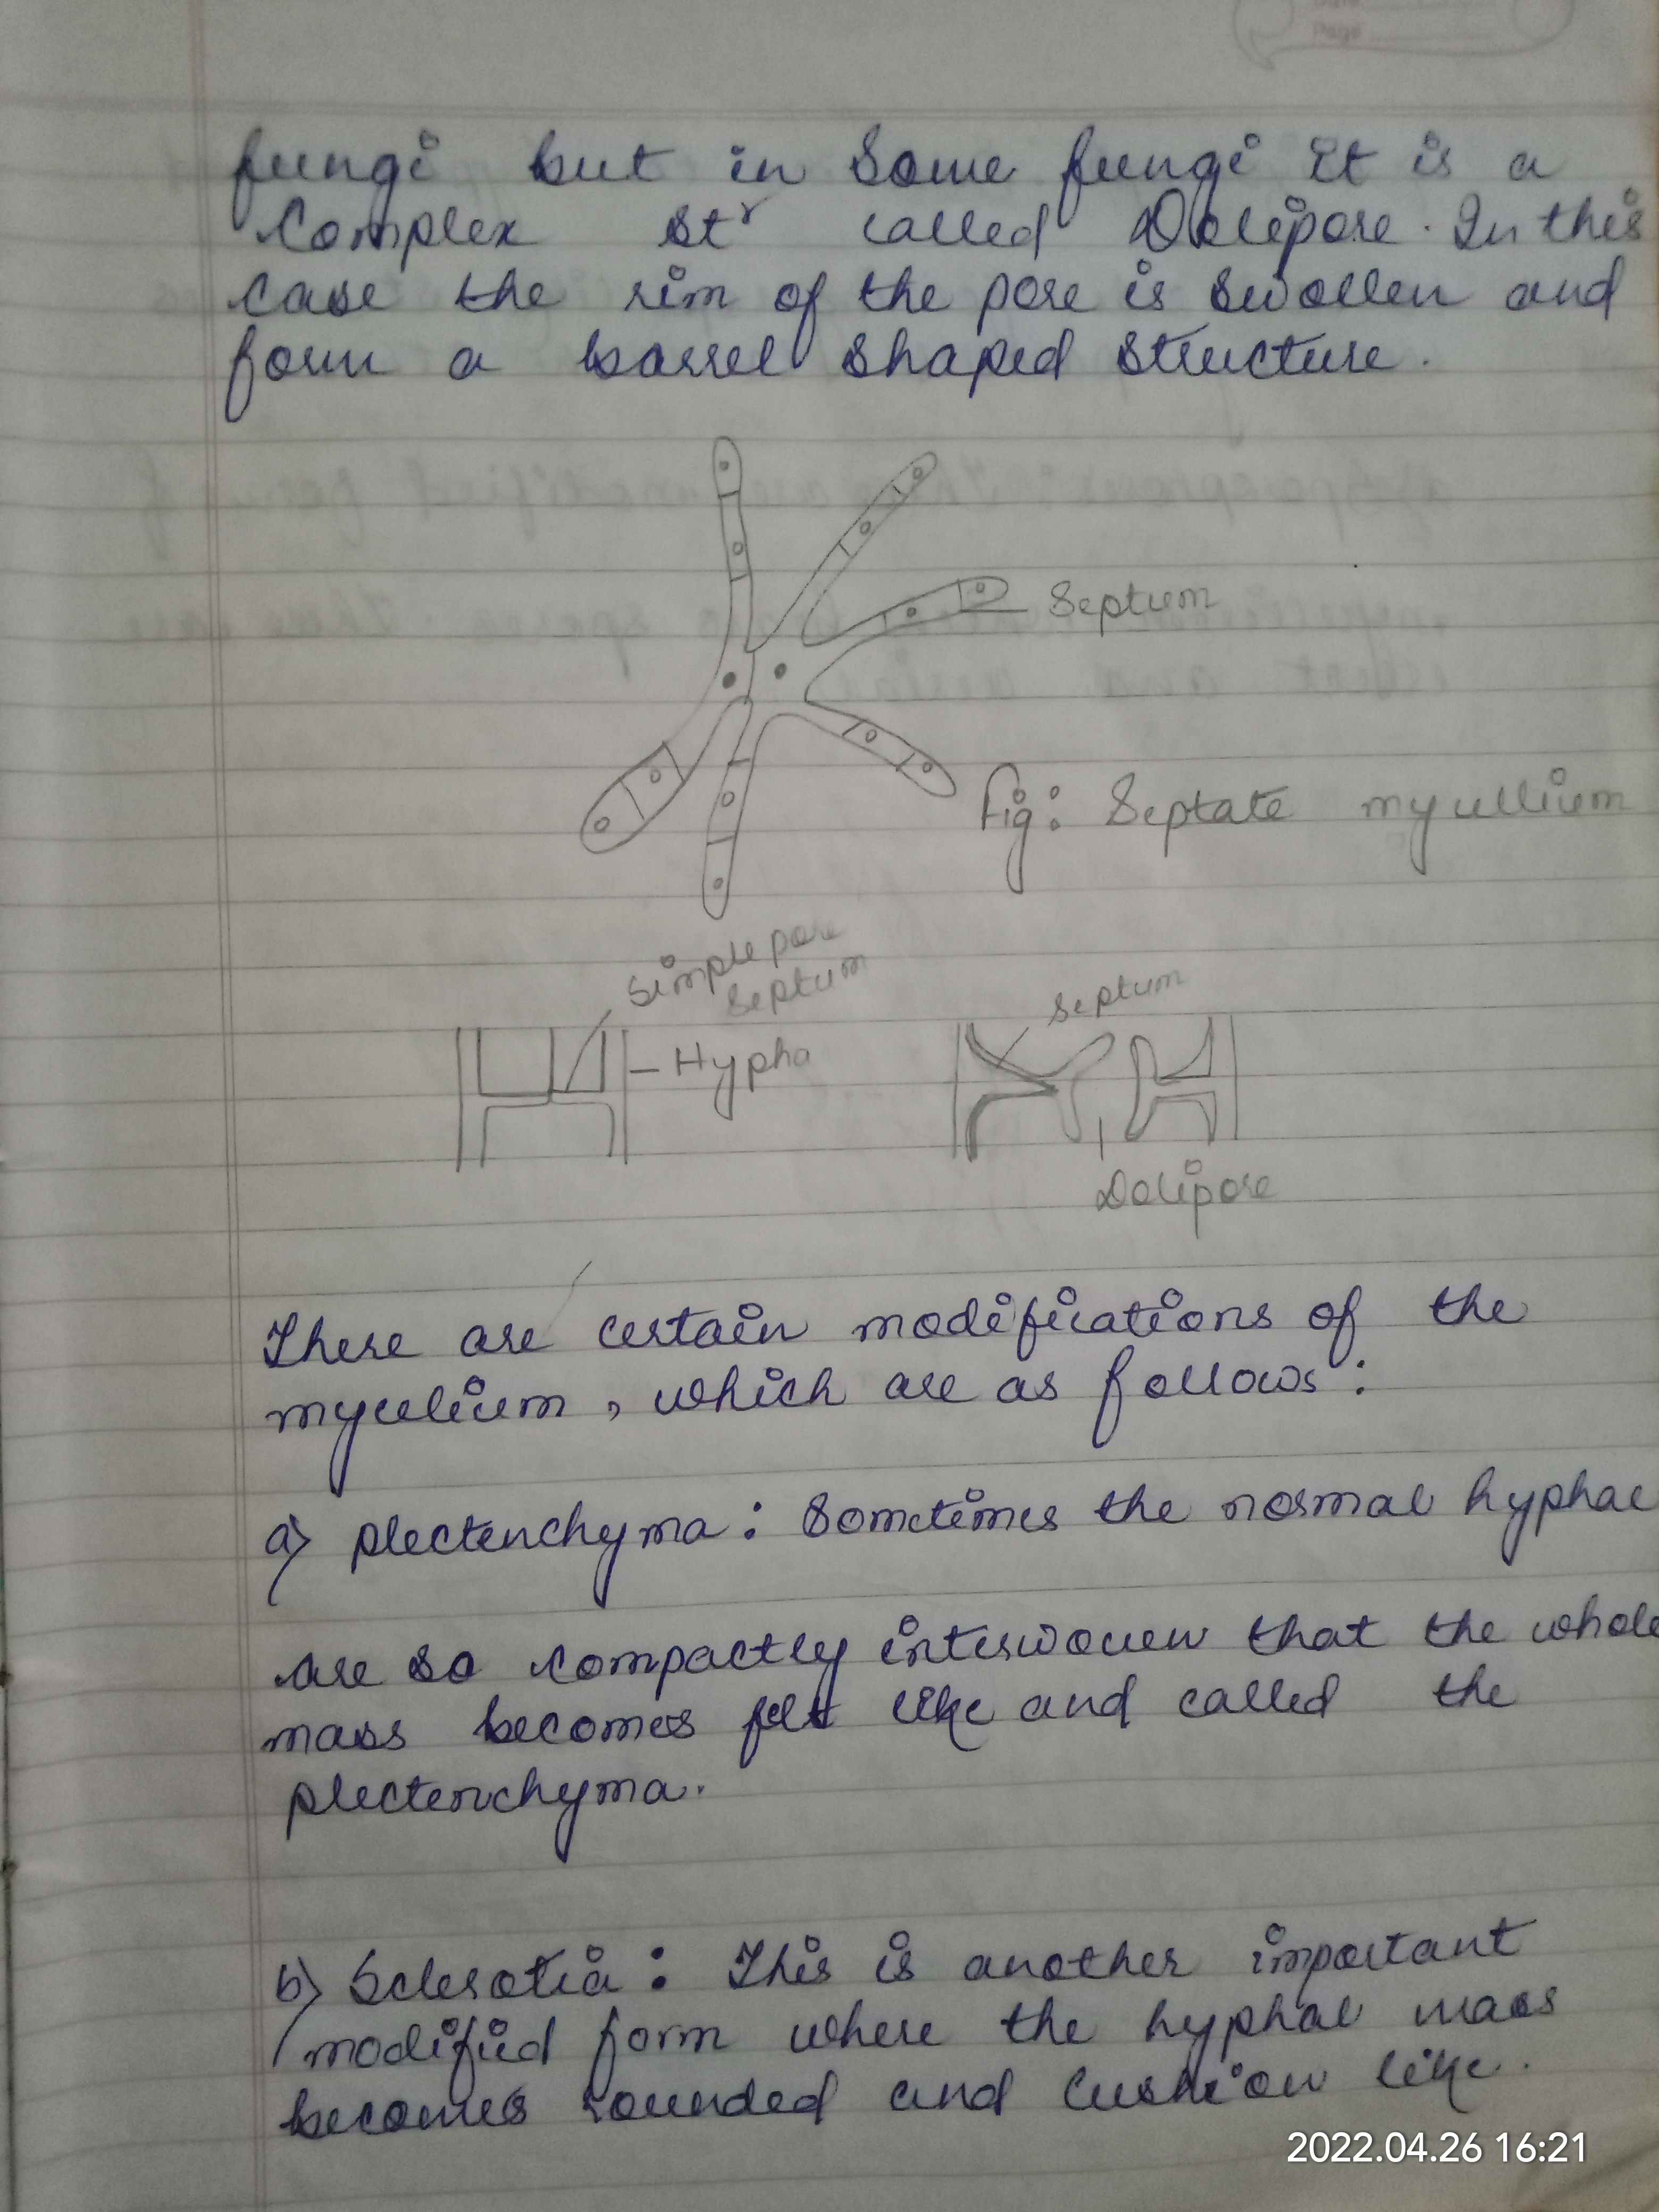 Page
fungi but in some fungi it is a
complex str called Dolipore. In this
case the rim of the pore is swollen and
form a barrel shaped structure.
Septum
Fig: Septate mycellium
Simple pore
septum
Hypha
septum
Dolipore
There are certain modifications of the
mycelium, which are as follows:
a) plectenchyma: Sometimes the normal hyphae
are so compactly interwoven that the whole
mass becomes felt like and called the
plectenchyma.
b) Sclerotia: This is another important
modified form where the hyphal mass
becomes rounded and cushion like.
2022.04.26 16:21